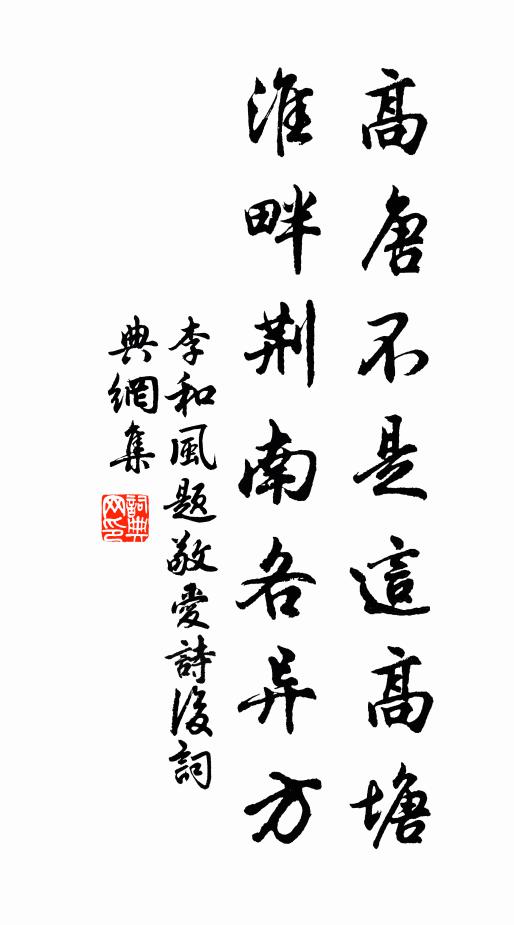 高唐不是這高塘
淮畔荆南各异方
李和風題敬愛詩後詞
典網集
詞典
网印